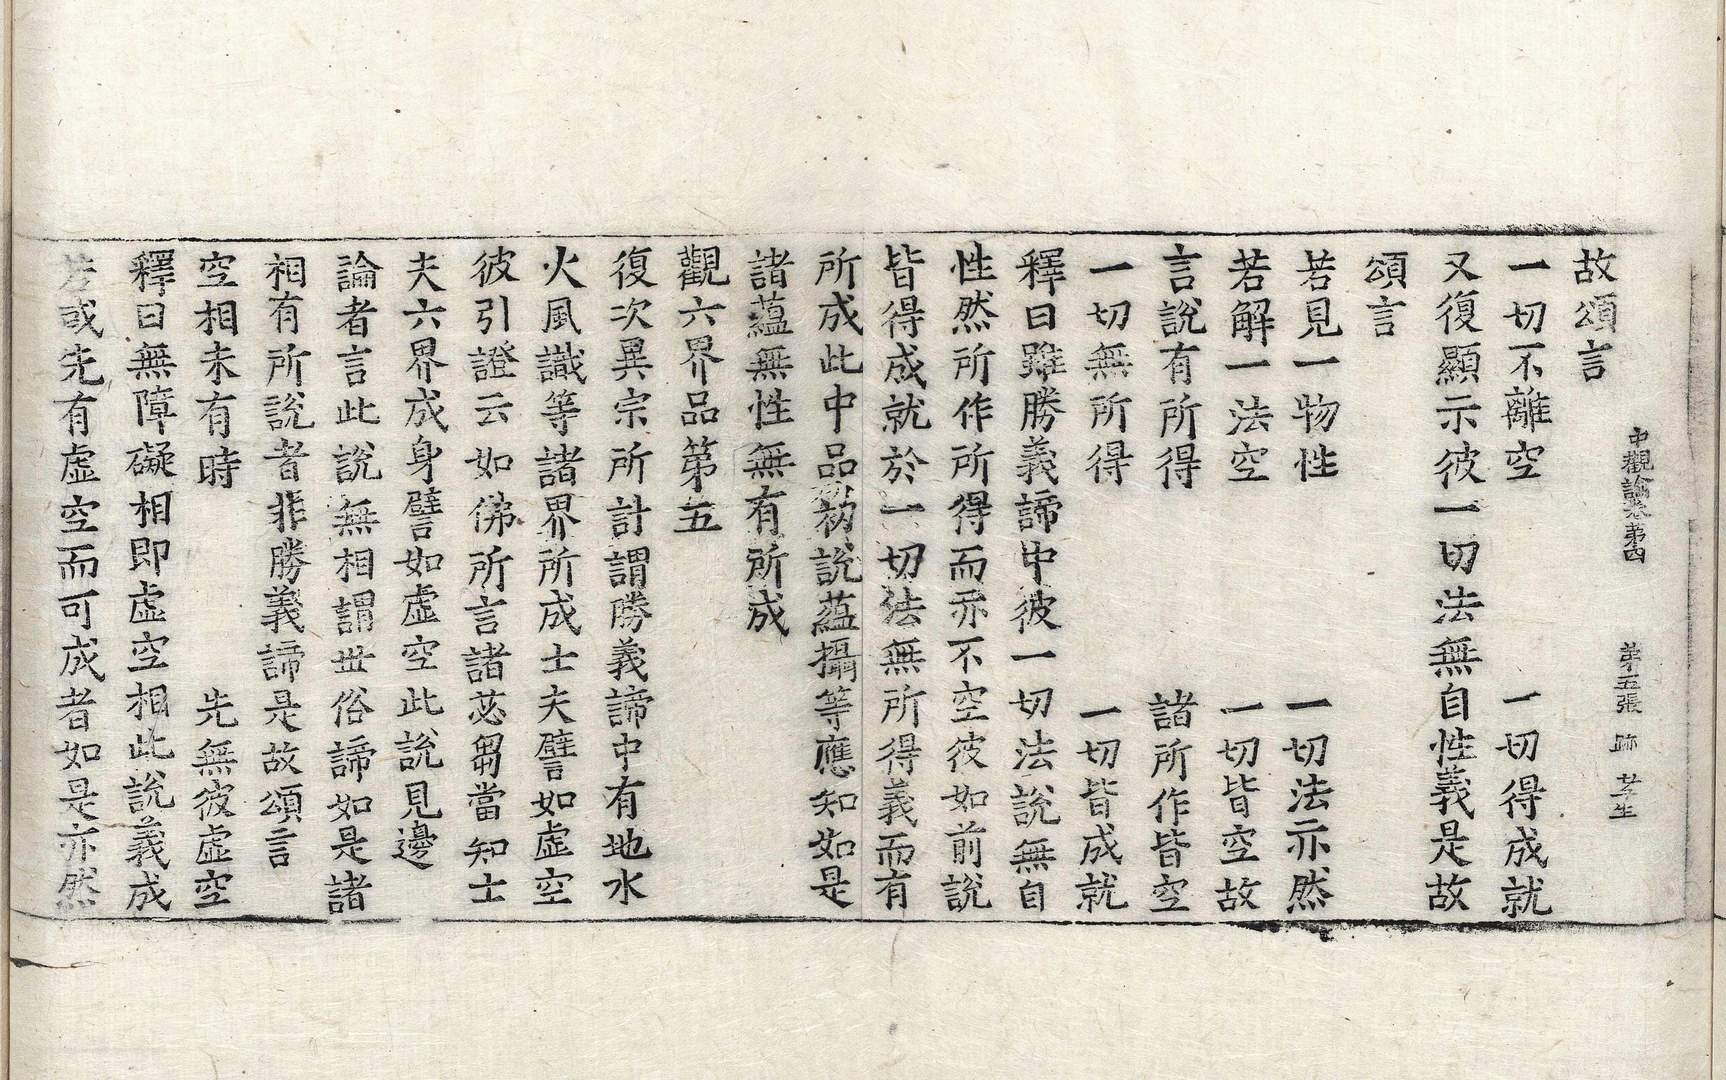 中觀論卷第四 第五張 跡
故頌言
一切不離空 一切得成就
又復顯示彼一切法無自性義是故
頌言
若見一物性 一切法亦然
若解一法空 一切皆空故
言說有所得 諸所作皆空
一切無所得 一切皆成就
釋曰雖勝義諦中彼一切法說無自
性然所作所得而亦不空彼如前說
皆得成就於一切法無所得義而有
所成此中品初說蘊攝等應知如是
諸蘊無性無有所成
觀六界品第五
復次異宗所計謂勝義諦中有地水
火風識等諸界所成士夫譬如虛空
彼引證云如佛所言諸苾芻當知士
夫六界成身譬如虛空此說見邊
論者言此說無相謂世俗諦如是諸
相有所說者非勝義諦是故頌言
空相未有時 先無彼虛空
釋曰無障礙相即虛空相此說義成
若或先有虛空而可成者如是亦然